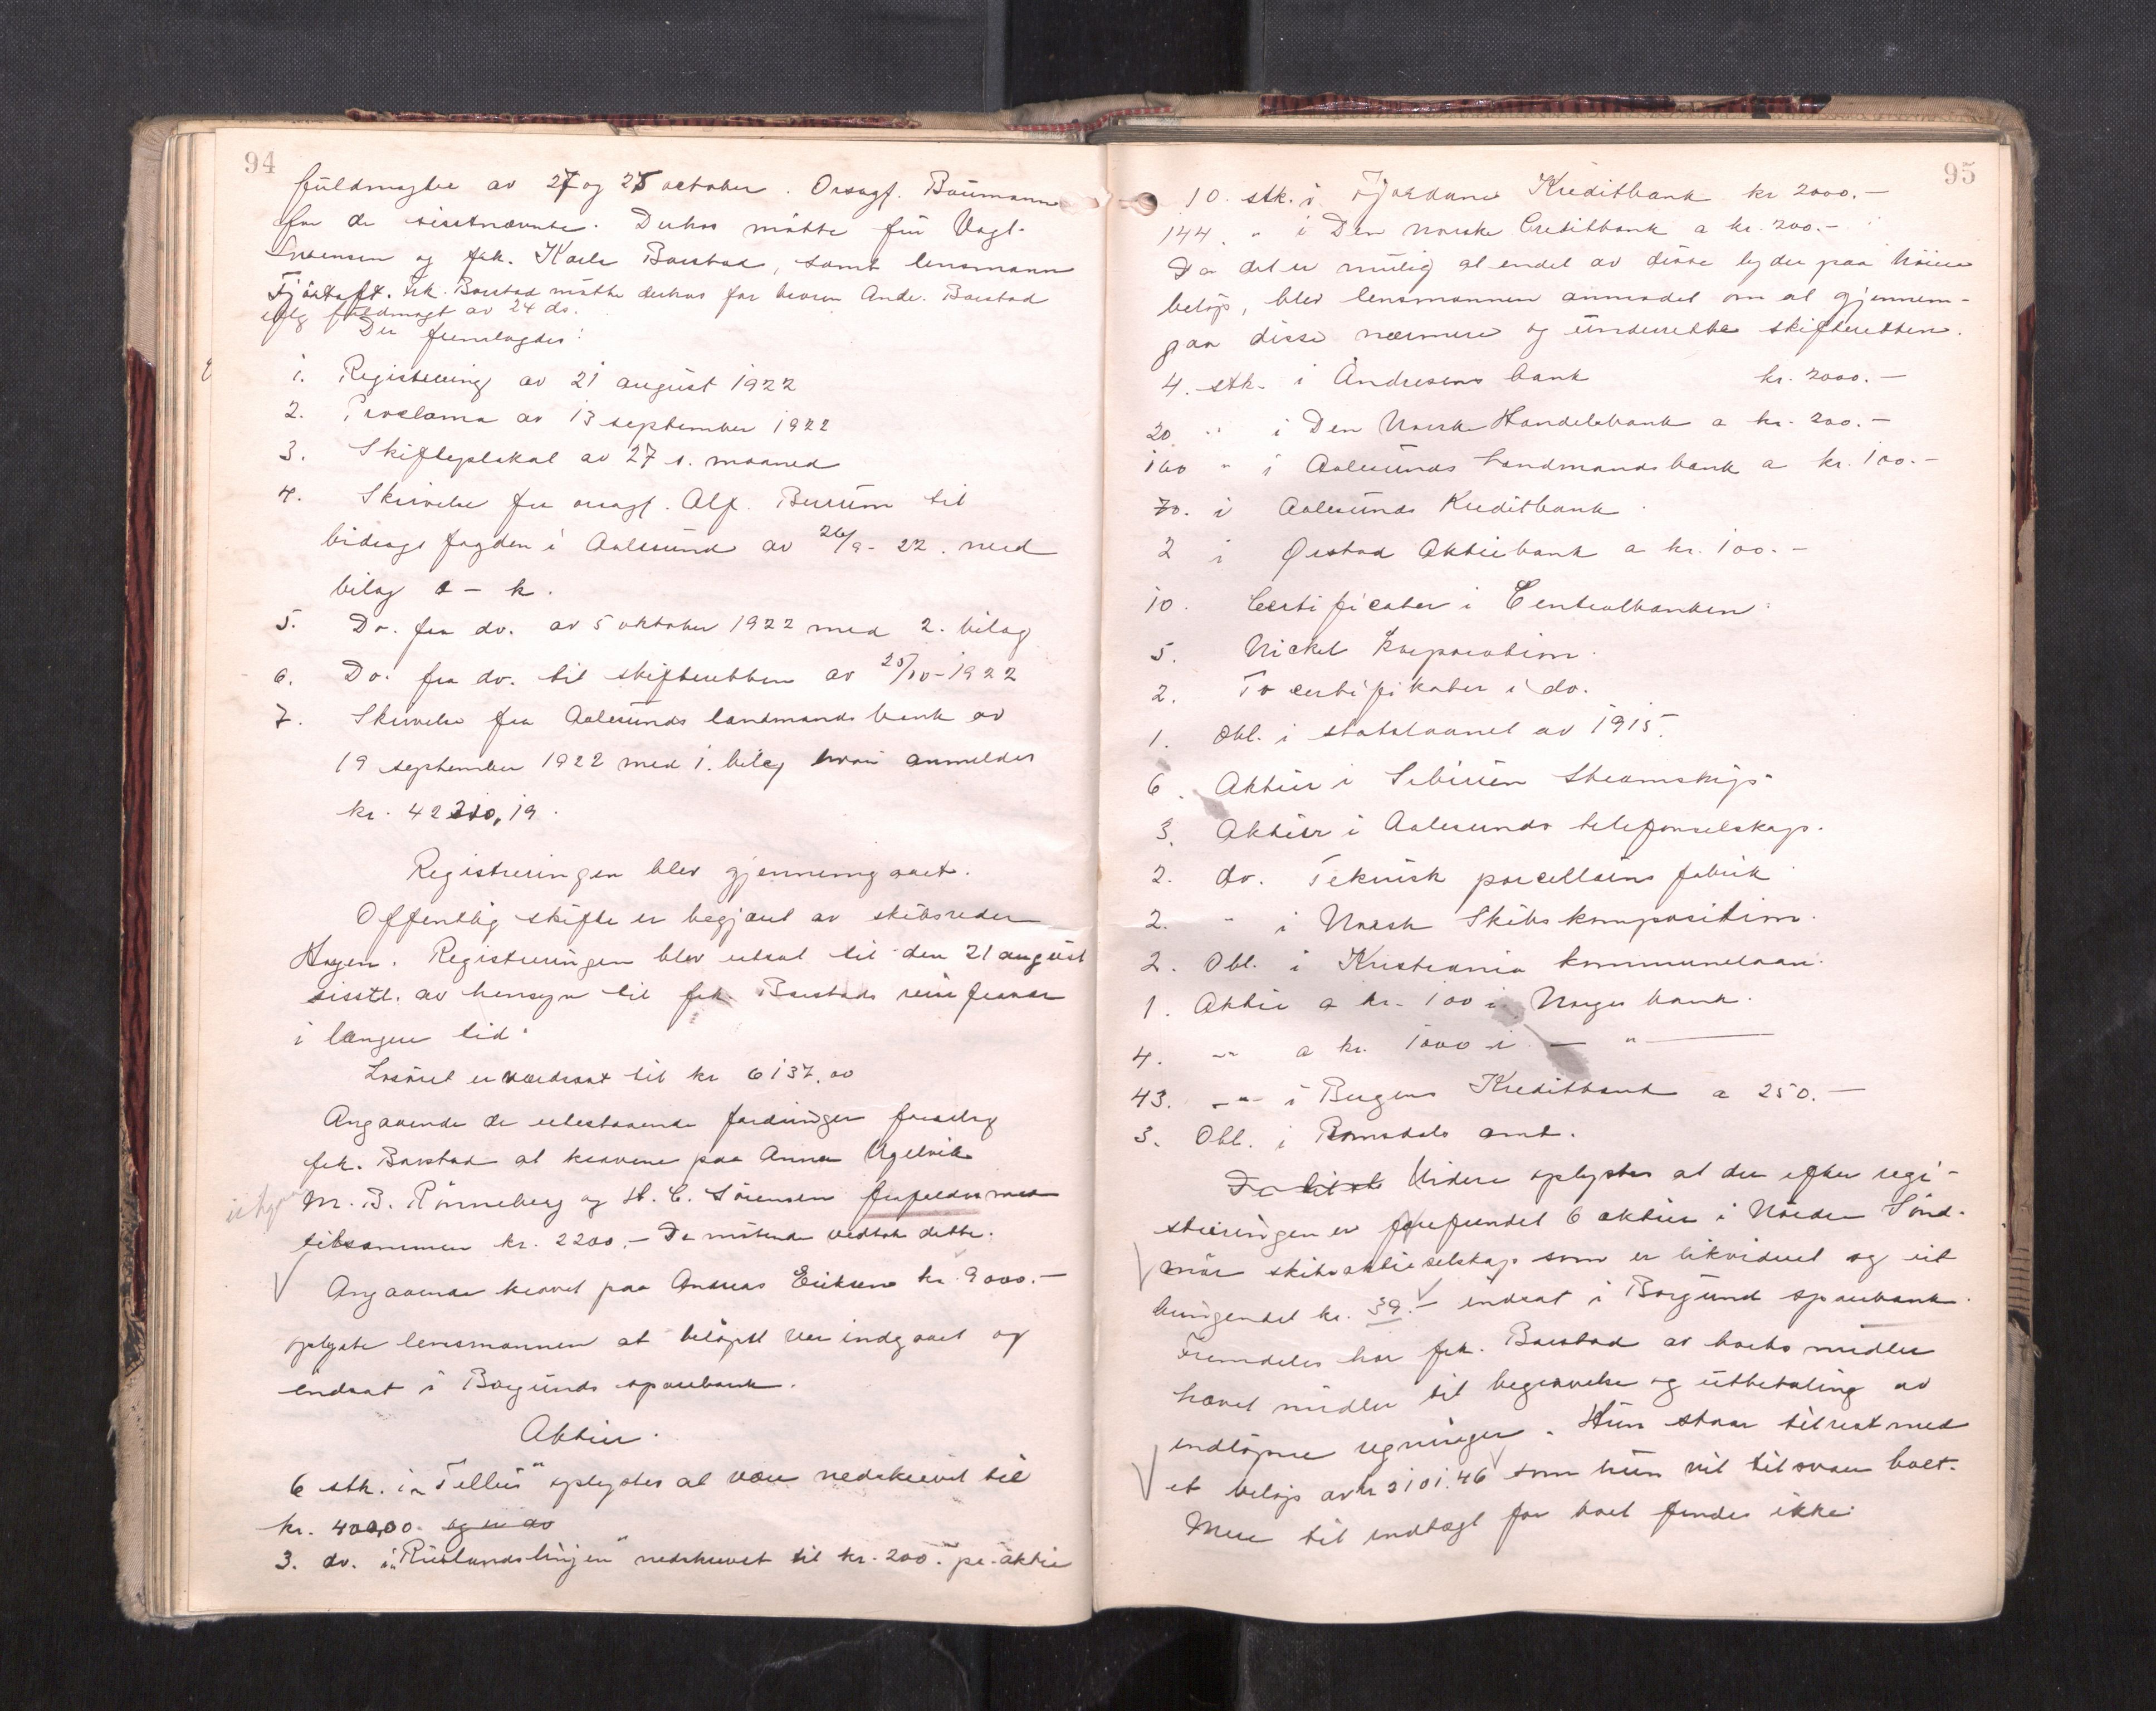 94
fuldmagter av 27 og 25 october. Orsagf. Baumann
for de sisstnævnte. Derhos møtte fru Vagt-
Svensen og frk. Karla Barstad, samt lensmann
Fjørtoft. Frk. Barstad møtte derhos for broren Andr. Barstad
iflg fuldmagt av 24 ds.
Der fremlagdes:
1. Registrering av 21 august 1922
2. Proclama av 13 september 1922
3. Skifteplakat av 27 s. maaned
4. Skrivelse fra orsagf. Alf. Burum til
bidragsfogden i Aalesund av 26/9-22. med
bilag a - k.
5. Do. fra do. av 5 oktober 1922 med 2. bilag
6. Do. fra do. til skifteretten av 25/10-1922
7. Skrivelse fra Aalesunds landmandsbank av
19 september 1922 med 1. bilag hvori anmeldes
kr. 42310,19.
Registreringen blev gjennemgaaet.
Offentlig skifte er begjært av skibsreder
Hagen. Registreringen blev utsat til den 21 august
sisstl. av hensyn til frk. Barstads reise fravær
i længere tid.
Løsøret er værdsat til kr 6137.00
Angaaende de utestaaende fordringer foreslog
frk. Barstad at kravene paa Anna Ugelvik
M. B. Rønneberg og H. C. Sørensen frafaldes med
tilsammen kr. 2200.- De møtende vedtok dette.
Angaaende kravet paa Andreas Eriksen kr. 9000.-
oplyste lensmannen at beløpet var indgaaet og
indsat i Borgunds sparebank.
Aktier.
6 stk. i "Tellus" oplystes at være nedskrevet til
kr. 400,00. og er av
3. do. i "Ruslandslinjen" nedskrevet til kr. 200.- pr. aktie
95
10. stk. i Fjordane Kreditbank kr 2000.-
144. " i Den norske Creditbank a kr. 200.-
Da det er mulig at endel av disse lyder paa høiere
beløp, blev lensmannen anmodet om at gjennem-
gaa disse nærmere og underrette skifteretten.
4. stk. i Andresens bank kr. 2000.-
20. " i Den Norske Handelsbank a kr. 200.-
100 " i Aalesunds Landmandsbank a kr. 100.-
70. i Aalesunds Kreditbank.
2 i Ørstad Aktiebank a kr. 100.-
10. Certificater i Centralbanken.
5. Nickel Korporation.
2. To certifikater i do.
1. Obl. i statslaanet av 1915.
6. Aktier i Sibirien Steamskips
3. Aktier i Aalesunds telefonselskap.
2. do. Teknisk porcellæns fabrik
2. " i Norsk Skibskomposition.
2. Obl. i Kristiania kommunelaan.
1. Aktie a kr. 100 i Norges bank.
4. -"- a kr. 1000 i - " -
43. -"- i Bergens Kreditbank a 250.-
3. Obl. i Romsdals amt.
Videre oplystes at der efter regi-
streringen er forefundet 6 aktier i Nordre Sønd-
mør skibsaktieselskap som er likvidert og ut
bringendet kr. 39.- indsat i Borgund sparebank.
Fremdeles har frk. Barstad av boets midler
hævet midler til begravelse og utbetaling av
indløpne regninger. Hun staar tilrest med
et beløp av kr 3101.46 som hun vil tilsvare boet.
Mere til indtægt for boet findes ikke.